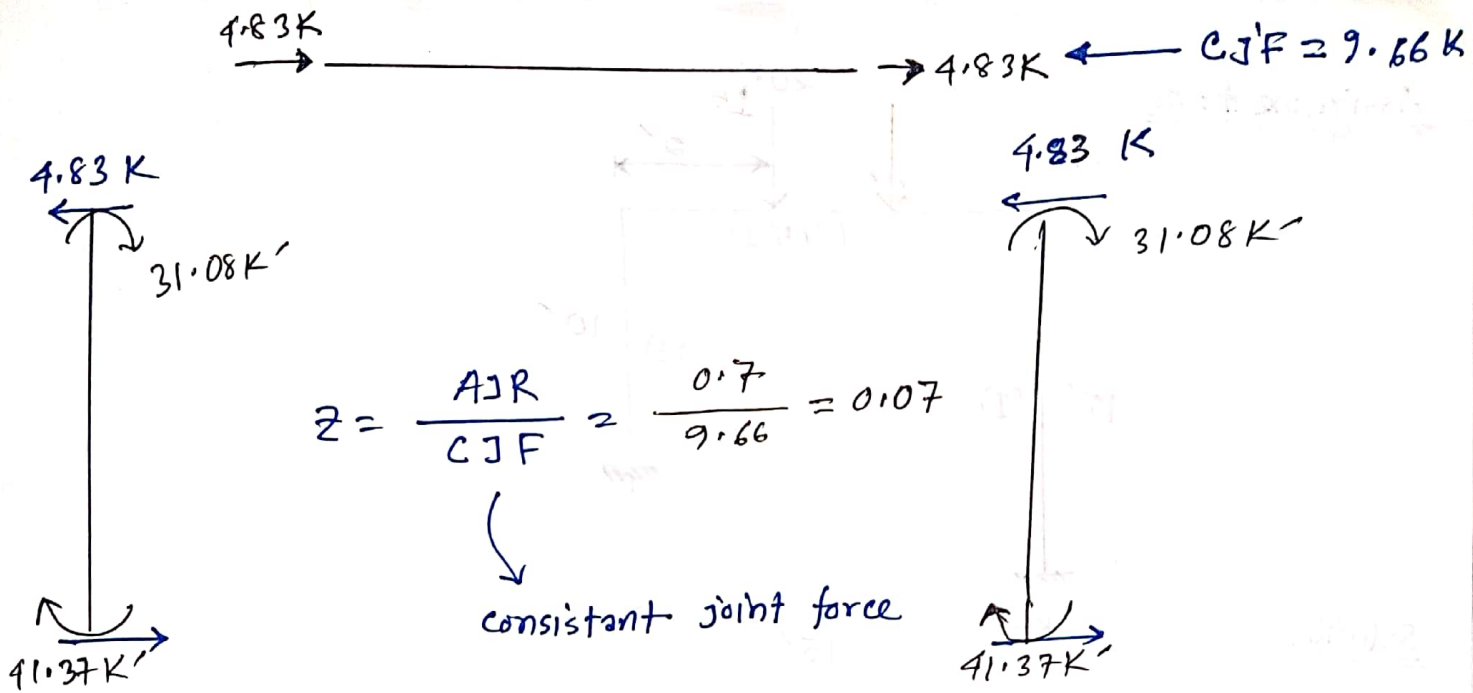 4.83K
→ 4.83K ← CJ'F = 9.66 K
4.83 K
4.83 K
31.08K'
31.08K'
Z = AJR / CJF = 0.7 / 9.66 = 0.07
consistant joint force
41.37K'
41.37K'